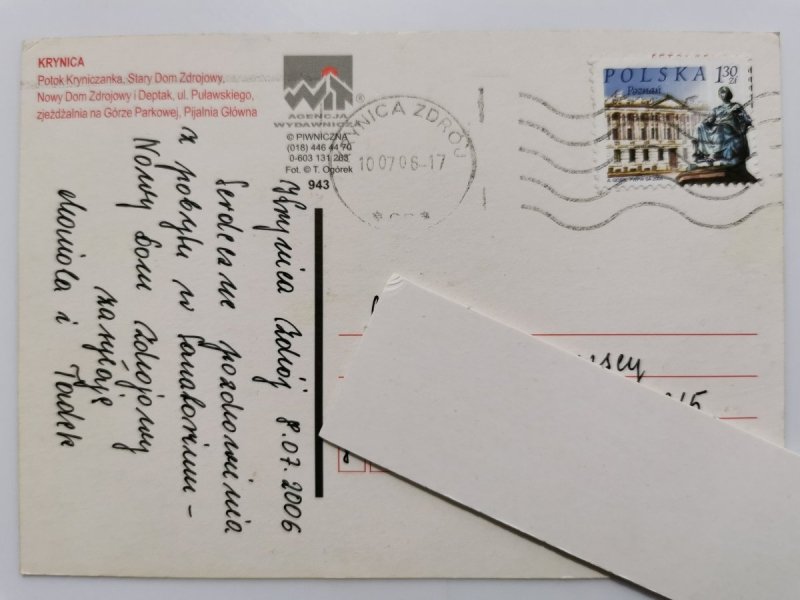 KRYNICA
Potok Kryniczanka, Stary Dom Zdrojowy,
Nowy Dom Zdrojowy i Deptak, ul. Puławskiego,
zjeżdżalnia na Górze Parkowej, Pijalnia Główna
WiT®
AGENCJA
WYDAWNICZA
© PIWNICZNA
(018) 446 44 70
0-603 131 263
Fot. © T. Ogórek
943
KRYNICA ZDRÓJ
10 07 06-17
POLSKA 1,30 zł
Poznań
Krynica Zdrój 8.07.2006
Serdeczne pozdrowienia
z pobytu w Sanatorium -
Nowy Dom Zdrojowy
zasyłają
Mariola i Tadek